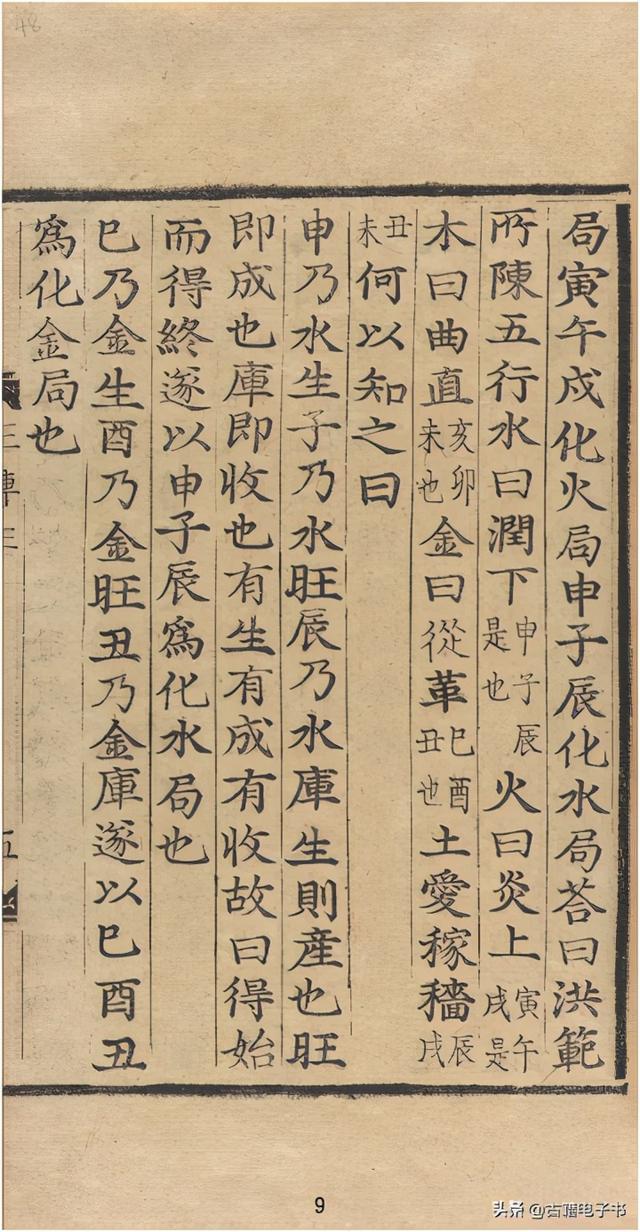 48
局寅午戌化火局申子辰化水局荅曰洪範
所陳五行水曰潤下申子辰是也火曰炎上寅午戌是
木曰曲直亥卯未也金曰從革巳酉丑也土愛稼穡辰戌
丑未何以知之曰
申乃水生子乃水旺辰乃水庫生則產也旺
即成也庫即收也有生有成有收故曰得始
而得終遂以申子辰爲化水局也
巳乃金生酉乃金旺丑乃金庫遂以巳酉丑
爲化金局也
三專三
五
9
头条@古籍电子书